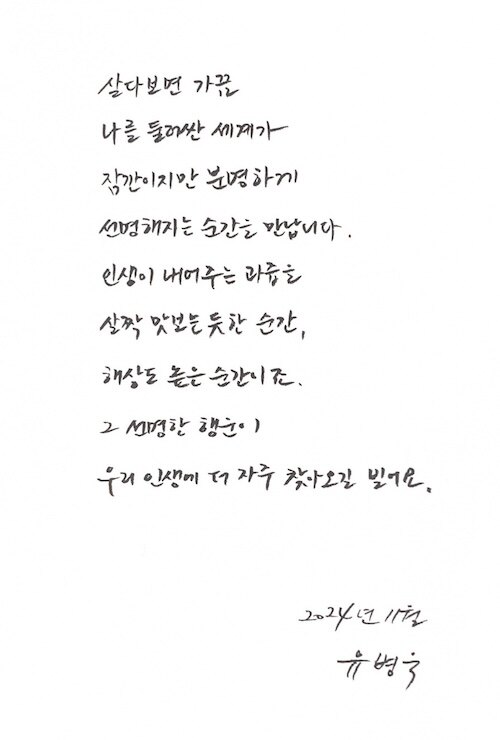 살다보면 가끔
나를 둘러싼 세계가
잠깐이지만 분명하게
선명해지는 순간을 만납니다.
인생이 내어주는 과즙을
살짝 맛보는 듯한 순간,
해상도 높은 순간이죠.
그 선명한 행운이
우리 인생에 더 자주 찾아오길 빌어요.
2024년 11월
유병욱